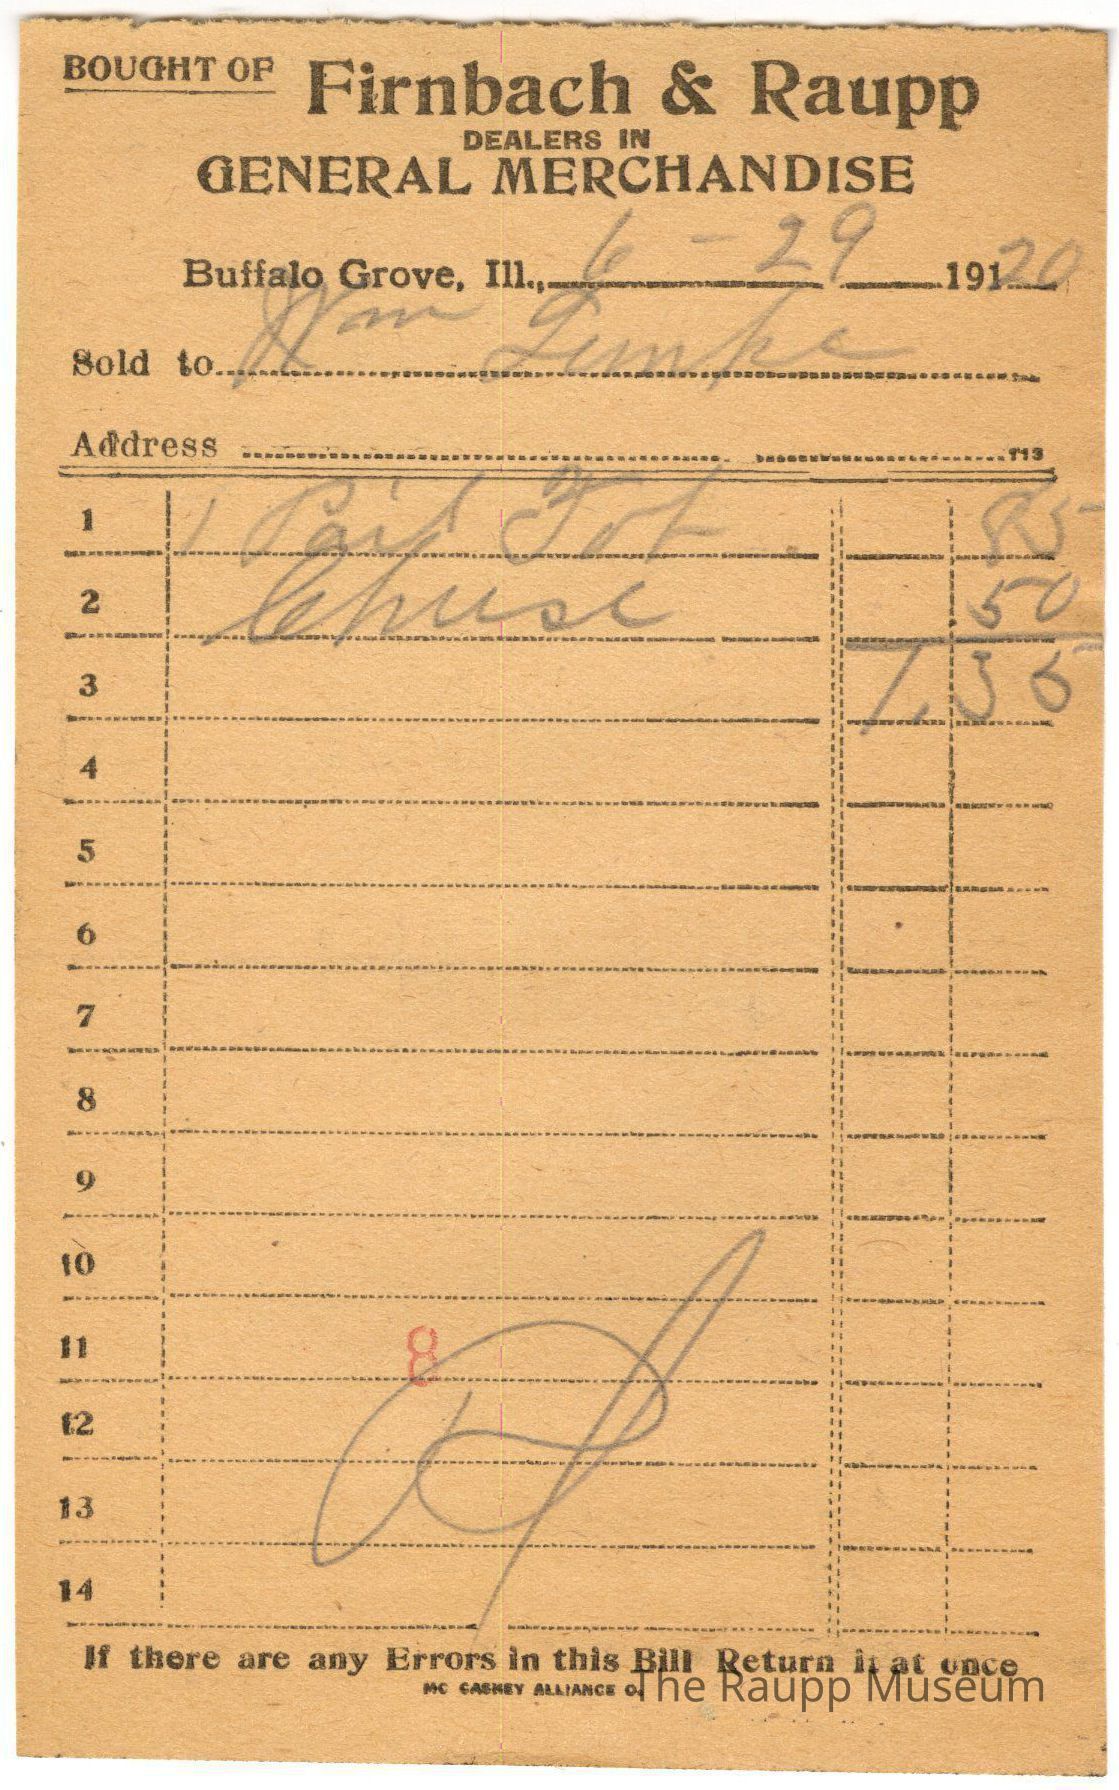 BOUGHT OF Firnbach & Raupp
DEALERS IN
GENERAL MERCHANDISE
Buffalo Grove, Ill., 6 - 29 191 20
Sold to Wm Temke
Address 113
1 1 Pail Tob. 85
2 Chuse 50
3 1.35
4
5
6
7
8
9
10
11 8
12
13
14
If there are any Errors in this Bill Return it at once
MC CASKEY ALLIANCE O.
The Raupp Museum